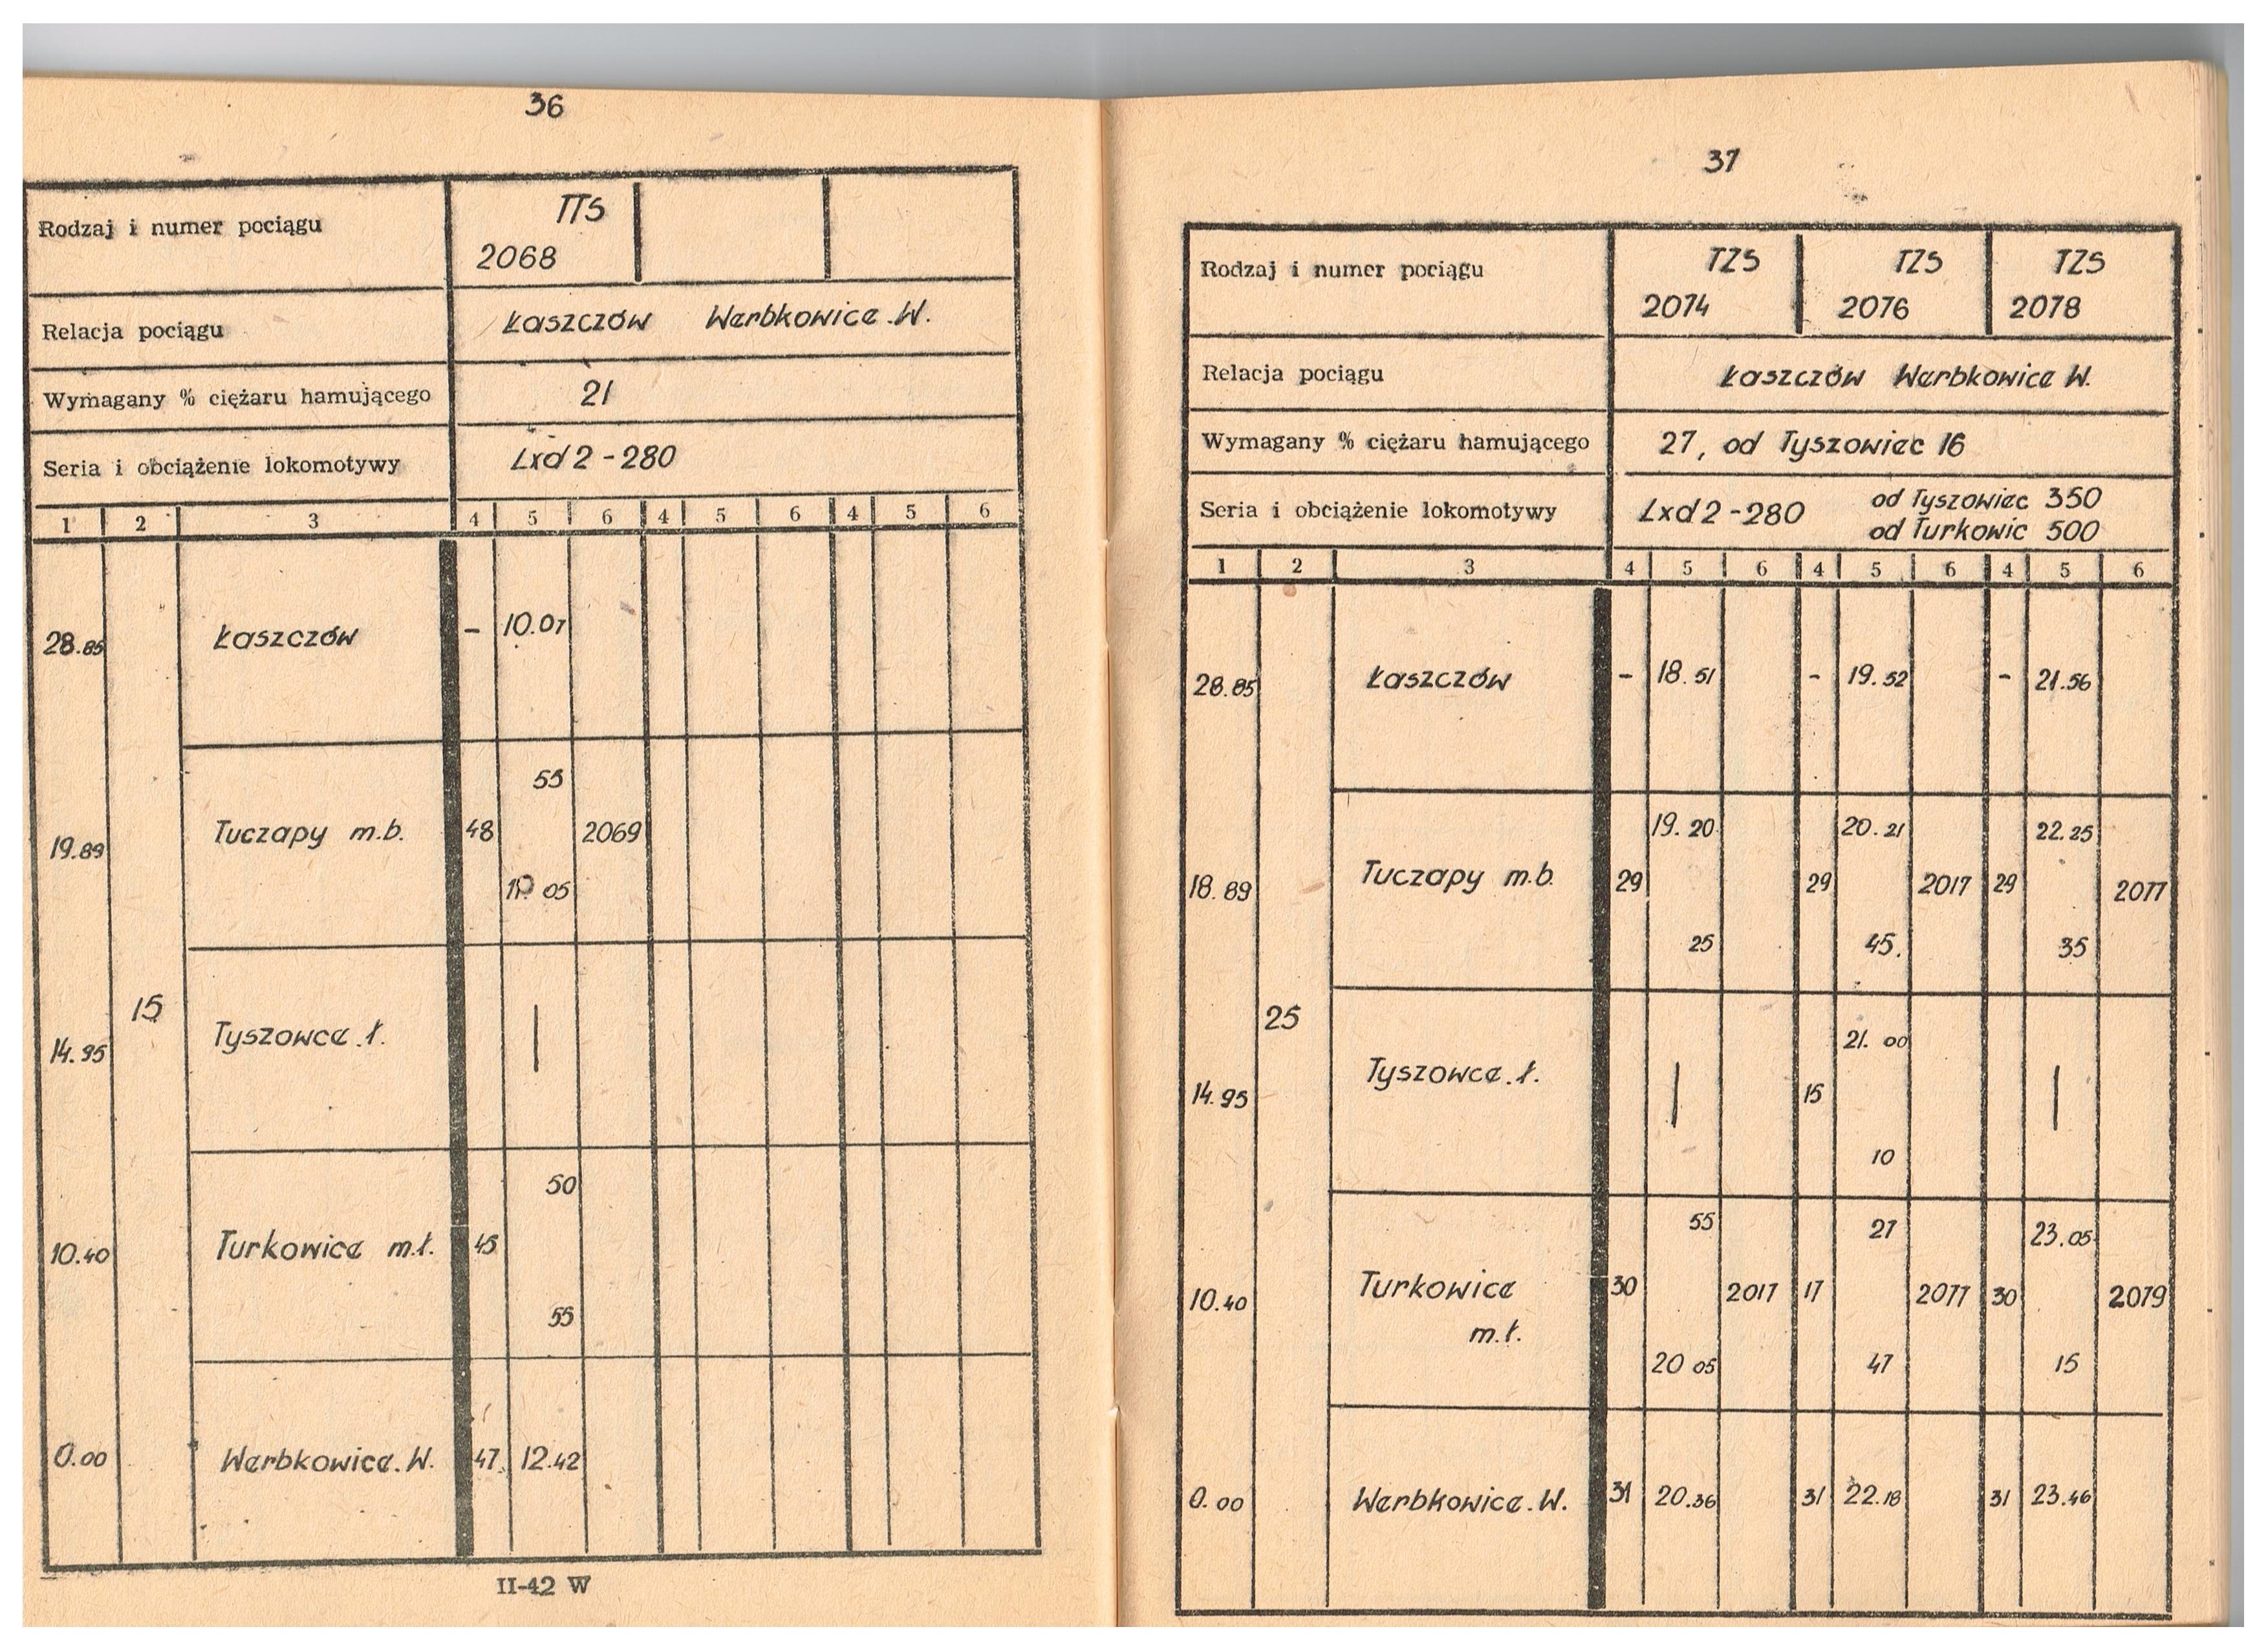 36
Rodzaj i numer pociągu
TTS
2068
Relacja pociągu
Łaszczów Werbkowice.W.
Wymagany % ciężaru hamującego
21
Seria i obciążenie lokomotywy
Lxd2-280
1 2 3 4 5 6 4 5 6 4 5 6
28.85 Łaszczów - 10.07
55
19.89 Tuczapy m.b. 48 2069
05
15
14.95 Tyszowce.ł. |
50
10.40 Turkowice m.ł. 45
55
0.00 Werbkowice.W. 47 12.42
II-42 W
37
Rodzaj i numer pociągu
TZS TZS TZS
2074 2076 2078
Relacja pociągu
Łaszczów Werbkowice W.
Wymagany % ciężaru hamującego
27, od Tyszowiec 16
Seria i obciążenie lokomotywy
Lxd2-280 od Tyszowiec 350
od Turkowic 500
1 2 3 4 5 6 4 5 6 4 5 6
28.85 Łaszczów - 18.51 - 19.52 - 21.56
19.20 20.21 22.25
18.89 Tuczapy m.b. 29 29 2017 29 2077
25 45. 35
25
21.00
14.95 Tyszowce.ł. | 15 |
10
55 27 23.05
10.40 Turkowice 30 2017 17 2077 30 2079
m.ł.
20 05 47 15
0.00 Werbkowice.W. 31 20.36 31 22.18 31 23.46